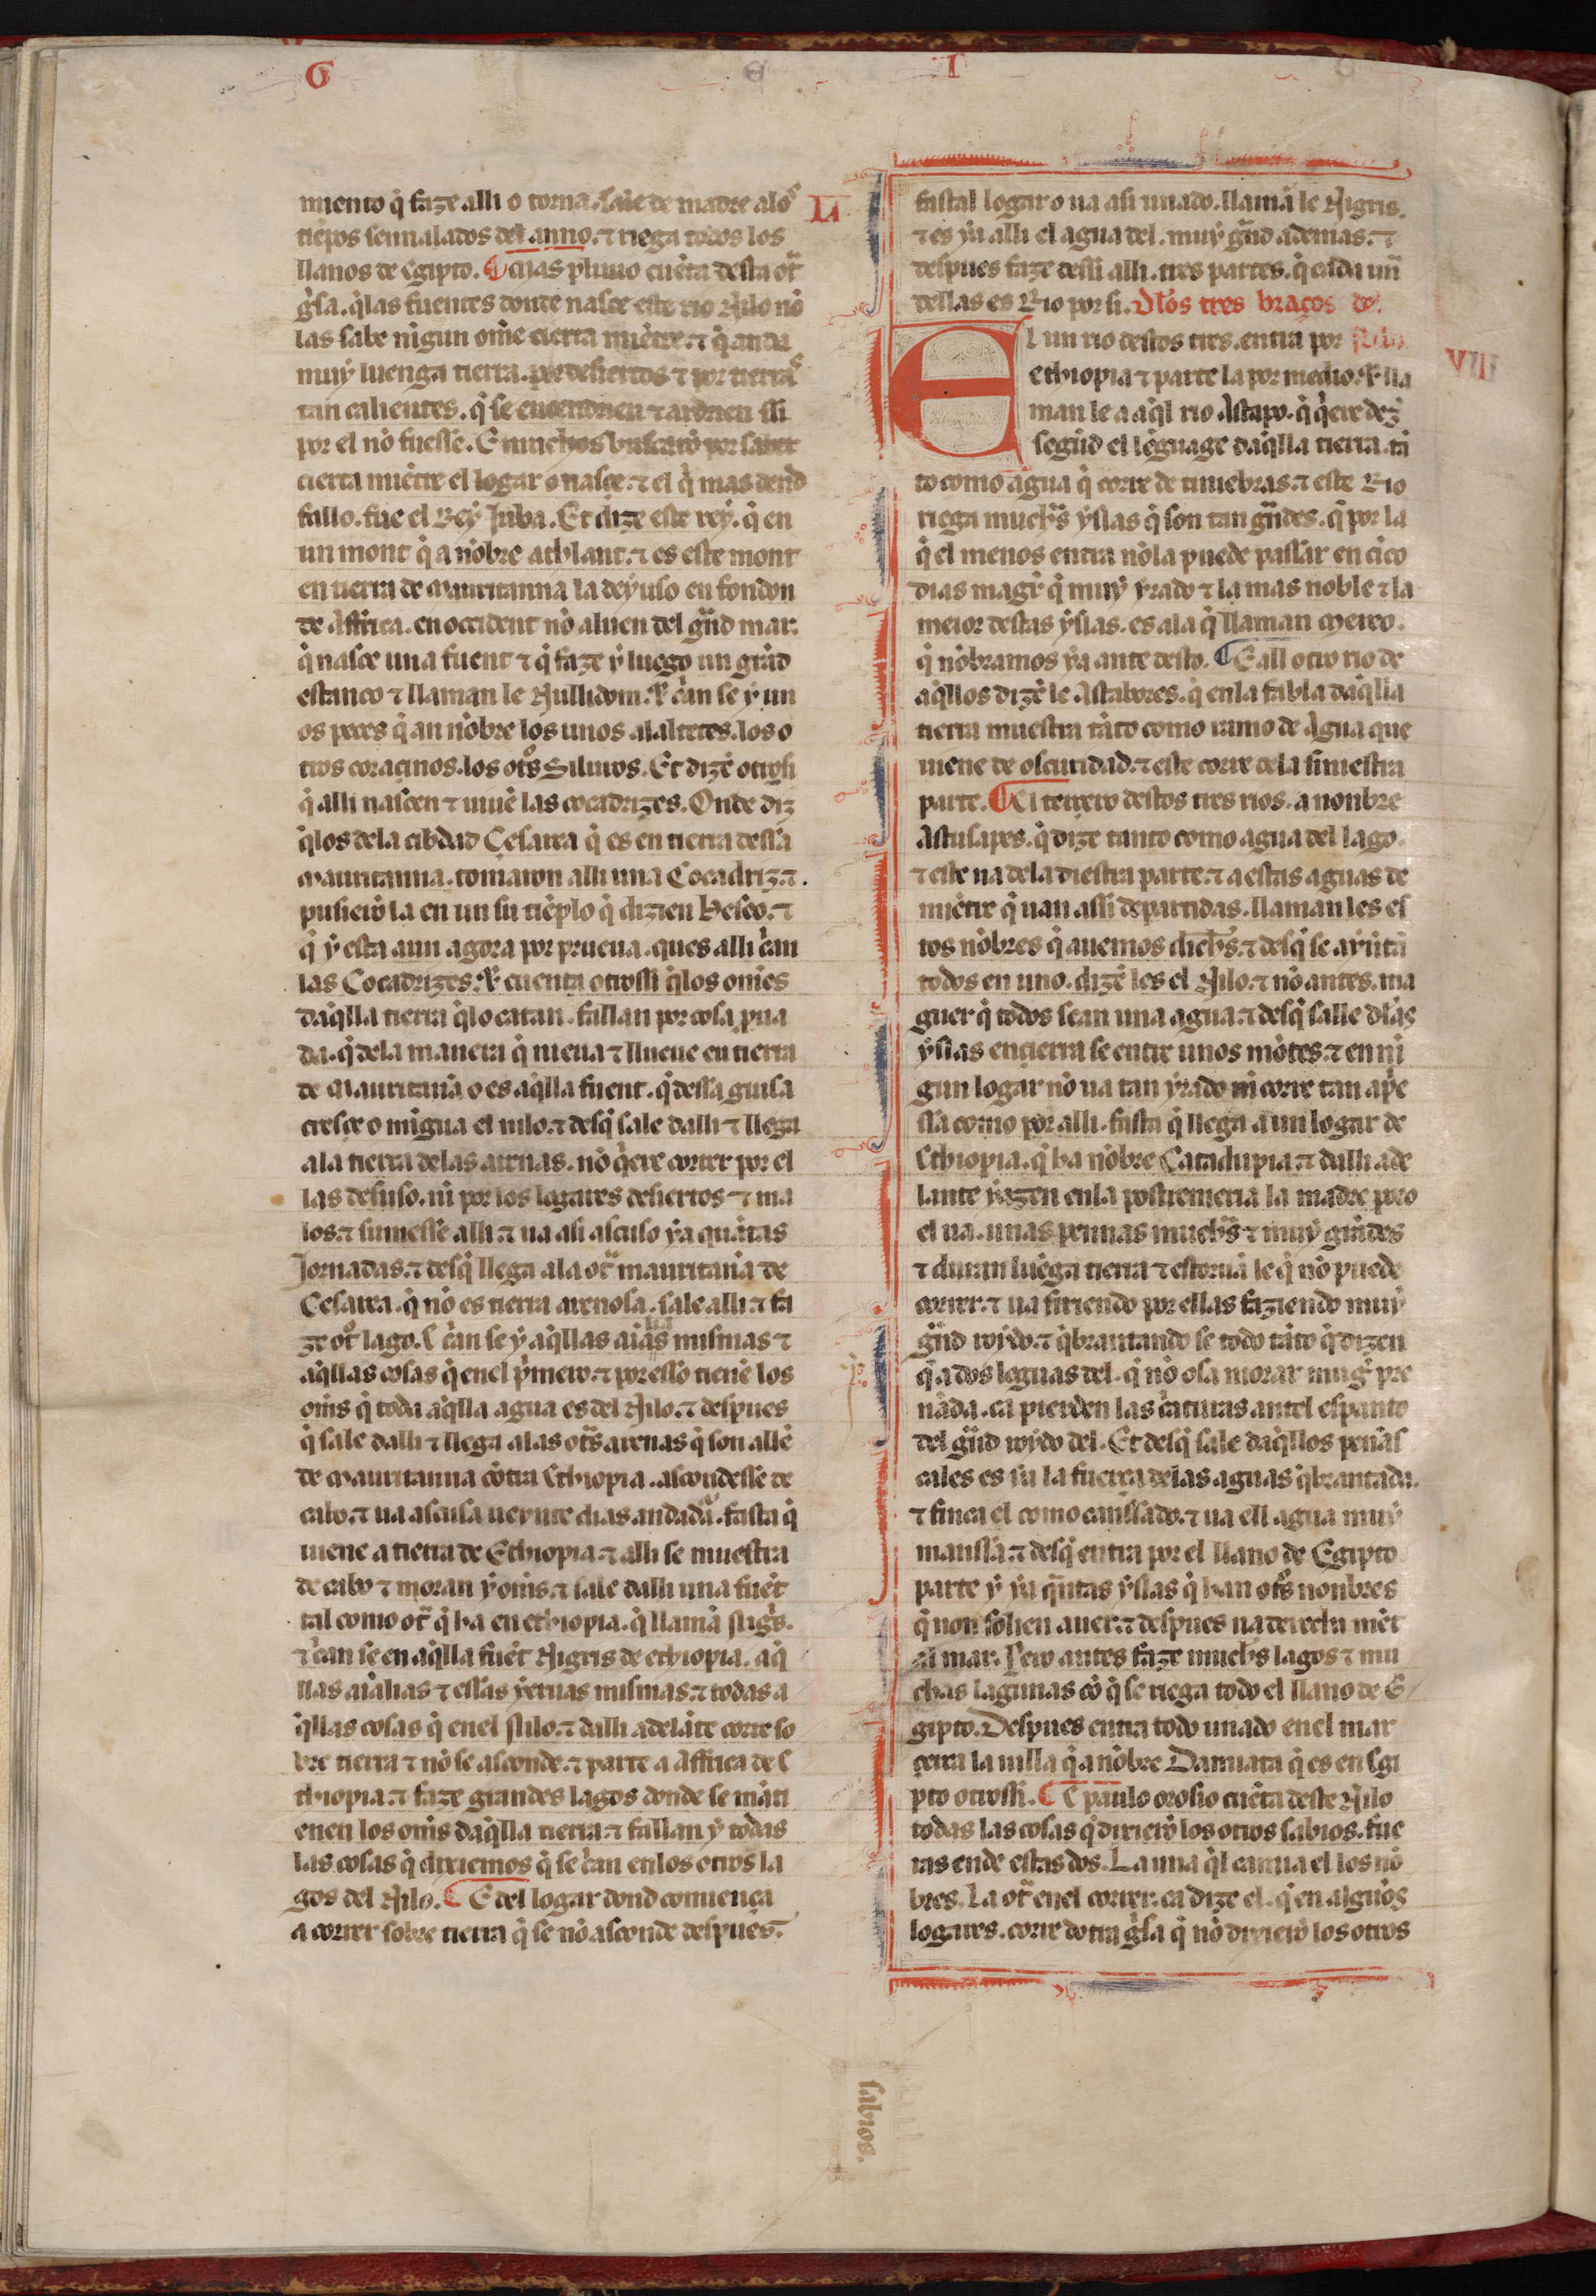 G
I
miento q̃ faze alli o torna. sale de madre a los
tiẽpos sennalados del anno. ⁊ riega todos los
llanos de Egipto. ¶ Mas plinio cuẽta desta ot̃
gˢsa. q̃ las fuentes donde nasce este rio Nilo nõ
las sabe nĩgun om̃e cierta miẽtre. ⁊ q̃ anda
muẏ luenga tierra. por desiertos ⁊ por tierras
tan calientes. q̃ se encendrien ⁊ ardrien ssi
por el nõ fuesse. E muchos buscarõ por saber
cierta miẽtre el logar o nasce. ⁊ el q̃ mas dend
fallo. fue el Reẏ Juba. Et dize este reẏ. q̃ en
un mont q̃ a nõbre athlant. ⁊ es este mont
en tierra de Mauritanna la deẏuso en fondon
de Affrica. en occident nõ aluen del gñd mar.
q̃ nasce una fuent ⁊ q̃ faze ẏ luego un grãd
estanco ⁊ llaman le Nullidom. ⁊ cᷓan se ẏ un
os peces q̃ an nõbre los unos alaltetes. los o
tros coracinos. los ot̃s Siluros. Et dizẽ otrosi
q̃ alli nascen ⁊ uiuẽ las cocadrizes. Onde diz
q̃ los de la cibdad Cesarea q̃ es en tierra dessa
Mauritanna. tomaron alli una Cocadriz. ⁊
pusierõ la en un su tiẽplo q̃ dizien Hesco. ⁊
q̃ ẏ esta aun agora por prueua. ques alli cᷓan
las Cocadrizes. ⁊ cuenta otrossi q̃ los omẽs
daq̃lla tierra q̃ lo catan. fallan por cosa prua
da. q̃ de la manera q̃ nieua ⁊ llueue en tierra
de Mauritaniã o es aq̃lla fuent. q̃ dessa guisa
cresce o mĩgua el nilo. ⁊ desq̃ sale dalli ⁊ llega
a la tierra de las arenas. nõ q̃ere correr por el
las desuso. ni por los logares desiertos ⁊ ma
los. ⁊ sumesse alli ⁊ ua assi ascuso ẏa quãtas
Jornadas. ⁊ desq̃ llega a la ot̃ mauritania de
Cesarea. q̃ nõ es tierra arenosa. sale alli. ⁊ fa
ze ot̃ lago. E cᷓan se ẏ aq̃llas aĩas misinas ⁊
aq̃llas cosas q̃ en el p̃mero. ⁊ por esso tienẽ los
om̃s q̃ toda aq̃lla agua es del Nilo. ⁊ despues
q̃ sale dalli ⁊ llega a las ot̃s arenas q̃ son allẽ
de Mauritanna cõtra Ethiopia. ascondesse de
cabo. ⁊ ua ascusa ueynte dias andaduᷓ. fasta q̃
uiene a tierra de Ethiopia. ⁊ alli se muestra
de cabo ⁊ moran ẏ om̃s. ⁊ sale dalli una fuẽt
tal como ot̃ q̃ ha en ethiopia. q̃ llamã nigˢs.
⁊ cᷓan se en aq̃lla fuẽt Nigris de ethiopia. aq̃
llas aĩalias ⁊ essas ẏeruas mismas. ⁊ todas a
q̃llas cosas q̃ en el nilo. ⁊ dalli adelãte corre so
bre tierra ⁊ nõ se asconde. ⁊ parte a Affrica de E
thiopia. ⁊ faze grandes lagos donde se mãti
enen los om̃s daq̃lla tierra. ⁊ fallan ẏ todas
las cosas q̃ dixiemos q̃ se cᷓan en los otros la
gos del Nilo. ¶ E del logar dond comiença
a correr sobre tierra q̃ se nõ asconde despues.
LI
fastal logar o ua assi unado. llamã le Nigris.
⁊ es ẏa alli el agua del. muẏ gñd ademas. ⁊
despues faze dessi alli. tres partes. q̃ cada uñ
dellas es Rio por si. Dlos tres braços del
nilo.
VIII
El un rio destos tres. entra por
ethiopia ⁊ parte la por medio. ⁊ lla
man le a aq̃l rio Astapo. q̃ q̃ere dez̃
segũd el lẽguage daq̃lla tierra. tã
to como agua q̃ corre de tiniebras. ⁊ este Rio
riega much̃s ẏslas q̃ son tan gñdes. q̃ por la
q̃ el menos entra nõ la puede passar en cĩco
dias magˢ q̃ muẏ ẏrado ⁊ la mas noble ⁊ la
meior destas ẏslas. es a la q̃ llaman Meroe.
q̃ nõbramos ẏa ante desto. ¶ E all otro rio de
aq̃llos dizẽ le Astabores. q̃ en la fabla daq̃lla
tierra muestra tãto como ramo de Agua que
uiene de oscuridad. ⁊ este corre de la siniestra
parte. ¶ El tercero destos tres rios. a nonbre
Astusapes. q̃ dize tanto como agua del lago.
⁊ este ua de la diestra parte. ⁊ a estas aguas de
miẽtre q̃ uan assi departidas. llaman les es
tos nõbres q̃ auemos dich̃s. ⁊ desq̃ se aẏũtã
todos en uno. dizẽ les el Nilo. ⁊ nõ antes. ma
guer q̃ todos sean una agua. ⁊ desq̃ salle dlas
ẏslas encierra se entre unos mõtes. ⁊ en nĩ
gun logar nõ ua tan ẏrado ni corre tan aᵽe
ssa como por alli. fasta q̃ llega a un logar de
Ethiopia. q̃ ha nõbre Catadupia. ⁊ dalli ade
lante ẏazen en la postremeria la madre poro
el ua. unas pennas much̃s ⁊ muẏ grãdes
⁊ duran luẽga tierra ⁊ estoruã le q̃ nõ puede
correr. ⁊ ua firiendo por ellas faziendo muẏ
gñd roẏdo. ⁊ q̃brantando se todo tãto q̃ dizen
q̃ a dos leguas del. q̃ nõ osa morar mugˢ pre
nãda. ca pierden las cᷓaturas antel espanto
del gñd roẏdo del. Et desq̃ sale daq̃llos penãs
cales es ẏa la fuerça de las aguas q̃brantada.
⁊ finca el como canssado. ⁊ ua ell agua muẏ
manssa. ⁊ desq̃ entra por el llano de Egipto
parte ẏ ẏa q̃ntas ẏslas q̃ han ot̃s nonbres
q̃ non solien auer. ⁊ despues ua derecha miẽt
al mar. Pero antes faze much̃s lagos ⁊ mu
chas lagunas cõ q̃ se riega todo el llano de E
gipto. Despues entra todo unado en el mar
cerca la uilla q̃ a nõbre Damiata q̃ es en Egi
pto otrossi. ¶ E paulo orosio cuẽta deste Nilo
todas las cosas q̃ dixierõ los otros sabios. fue
ras ende estas dos. La una q̃l camia el los nõ
bres. La ot̃ en el correr. ca dize el. q̃ en algunos
logares. corre dotra gˢsa q̃ nõ dixierõ los otros
sabios.